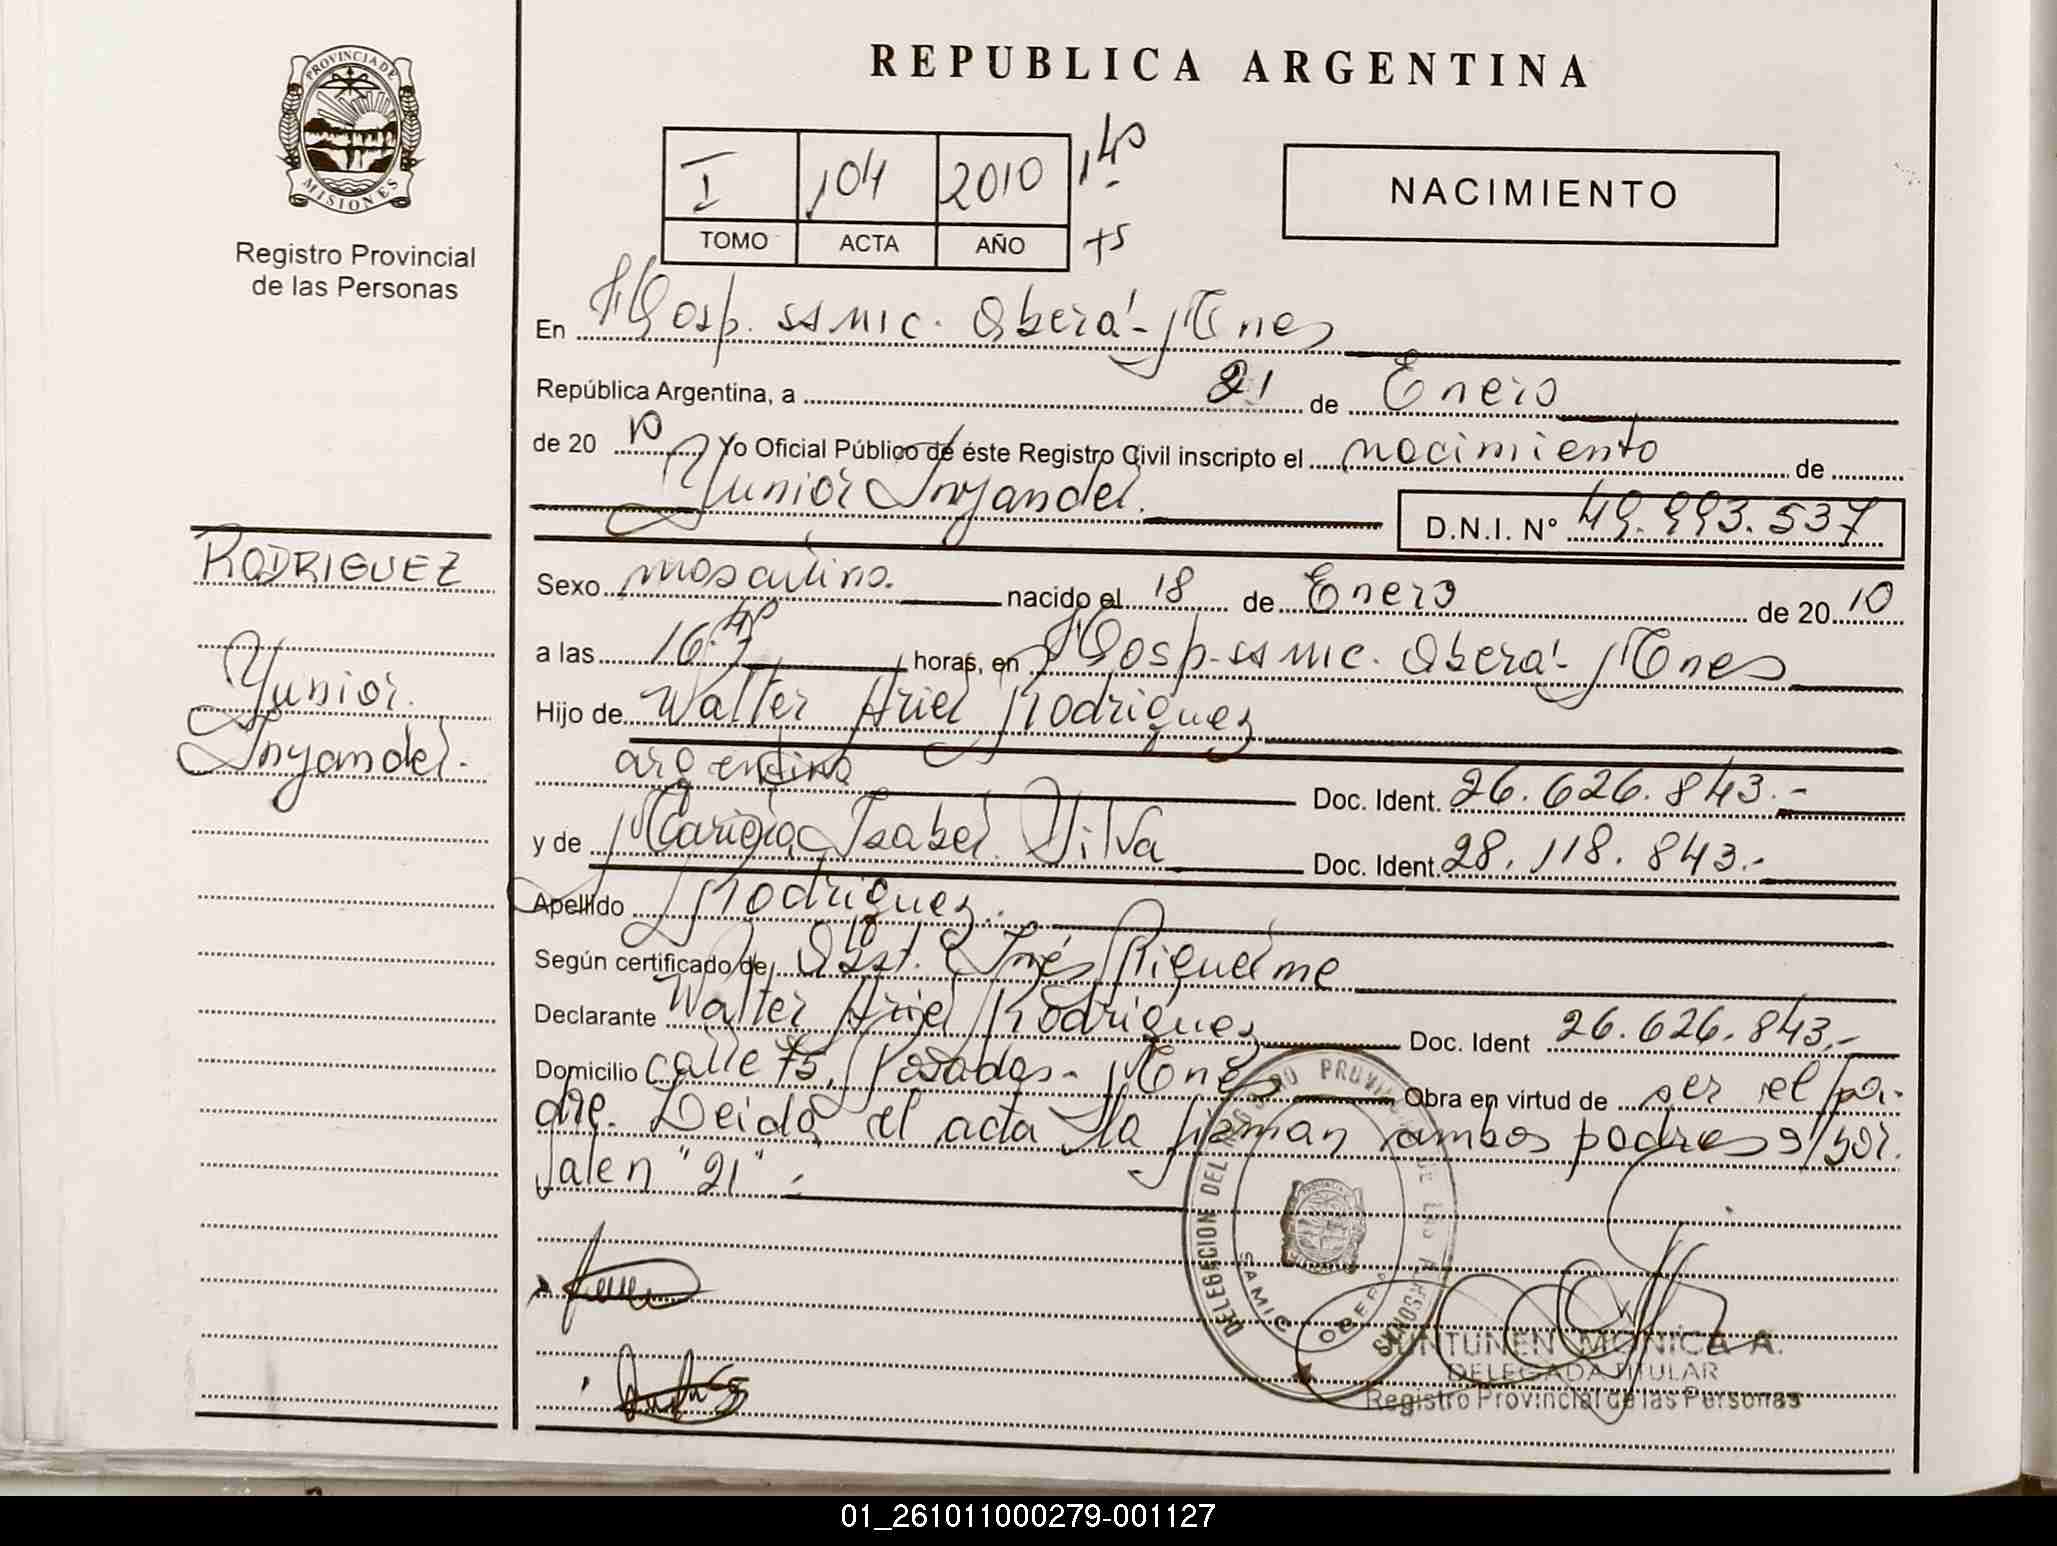 PROVINCIA DE
MISIONES
Registro Provincial
de las Personas
REPUBLICA ARGENTINA
I 104 2010
TOMO ACTA AÑO
NACIMIENTO
En Hosp. SAMIC. Oberá - Mnes
República Argentina, a 21 de Enero
de 20 10 Yo Oficial Público de éste Registro Civil inscripto el nacimiento de
Yunior Inyandel. D.N.I. Nº 49.993.537
RODRIGUEZ
Yunior
Inyandel.-
Sexo masculino. nacido el 18 de Enero de 20 10
a las 16. horas, en Hosp. SAMIC. Oberá - Mnes
Hijo de Walter Ariel Rodriguez
argentino Doc. Ident. 26.626.843.-
y de Isabel Silva Doc. Ident. 28.118.843.-
Apellido Rodriguez.
Según certificado de Obst. Inés Riquelme
Declarante Walter Ariel Rodriguez Doc. Ident 26.626.843.-
Domicilio calle 75, Posadas - Mnes Obra en virtud de ser el pa-
dre. Leida el acta la firman ambos padres s/ bor.
Valen "21" .-
DELEGACION DEL REGISTRO PROVINCIAL DE LAS PERSONAS
SAMIC OBERA
SUNTUNEN MONICA A.
DELEGADA TITULAR
Registro Provincial de las Personas
01_261011000279-001127